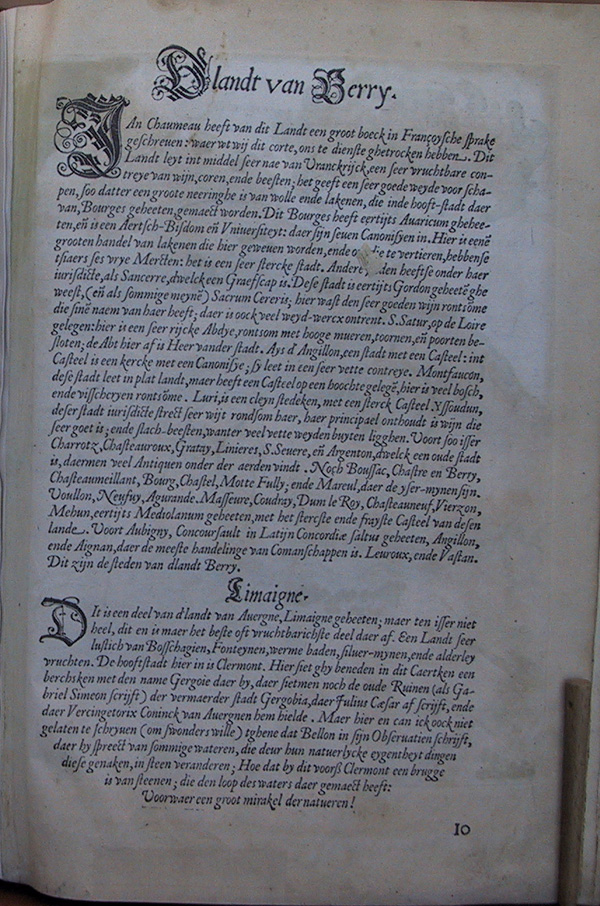 Dlandt van Berry.
IAn Chaumeau heeft van dit Landt een groot boeck in Françoysche sprake
geschreuen: waer wt wij dit corte, ons te dienste ghetrocken hebben. Dit
Landt leyt int middel seer nae van Vranckrijck, een seer vruchtbare con-
treye van wijn, coren, ende beesten; het geeft een seer goede weyde voor scha-
pen, soo datter een groote neeringhe is van wolle ende lakenen, die inde hooft-stadt daer
van, Bourges geheeten, gemaect worden. Dit Bourges heeft eertijts Auaricum ghehee-
ten, eñ is een Aertsch-Bisdom eñ Vniuersiteyt: daer sijn seuen Canonisyen in. Hier is eenē
grooten handel van lakenen die hier geweuen worden, ende o re te vertieren, hebbense
tsiaers ses vrye Mercten: het is een seer stercke stadt. Andere den heeftse onder haer
iurisdictie, als Sancerre, dwelck een Graefscap is. Dese stadt is eertijts Gordon geheetē ghe
weest, (eñ als sommige meynē) Sacrum Cereris; hier wast den seer goeden wijn rontsōme
die sinē naem van haer heeft; daer is oock veel weyd-wercx ontrent. S. Satur, op de Loire
gelegen: hier is een seer rijcke Abdye, rontsom met hooge mueren, toornen, eñ poorten be-
sloten; de Abt hier af is Heer vander stadt. Ays d'Angillon, een stadt met een Casteel: int
Casteel is een kercke met een Canonisye; sy leet in een seer vette contreye. Montfaucon,
dese stadt leet in plat landt, maer heeft een Casteel op een hoochte gelegē, hier is veel bosch,
ende visscheryen rontsōme. Luri, is een cleyn stedeken, met een sterck Casteel Yssoudun,
deser stadt iurisdictie strect seer wijt rondsom haer, haer principael onthoudt is wijn die
seer goet is; ende slach-beesten, wanter veel vette weyden buyten ligghen. Voort soo isser
Charrotz, Chasteauroux, Gratay, Linieres, S. Seuere, eñ Argenton, dwelck een oude stadt
is, daermen veel Antiquen onder der aerden vindt. Noch Boussac, Chastre en Berry,
Chasteaumeillant, Bourg, Chastel, Motte Fully; ende Mareul, daer de yser-mynen sijn.
Voullon, Neufuy, Agurande. Masseure, Coudray, Dum le Roy, Chasteauneuf, Vierzon,
Mehun, eertijts Mediolanum geheeten, met het sterctste ende frayste Casteel van desen
lande. Voort Aubigny, Concoursault in Latijn Concordiæ saltus geheeten, Angillon,
ende Aignan, daer de meeste handelinge van Comanschappen is. Leuroux, ende Vastan.
Dit zijn de steden van dlandt Berry.
Limaigne.
DIt is een deel van d'landt van Auergne, Limaigne geheeten; maer ten isser niet
heel, dit en is maer het beste oft vruchtbarichste deel daer af. Een Landt seer
lustich van Bosschagien, Fonteynen, werme baden, siluer-mynen, ende alderley
vruchten. De hooftstadt hier in is Clermont. Hier siet ghy beneden in dit Caertken een
berchsken met den name Gergoie daer by, daer sietmen noch de oude Ruinen (als Ga-
briel Simeon scrijft) der vermaerder stadt Gergobia, daer Julius Cæsar af scrijft, ende
daer Vercingetorix Coninck van Auergnen hem hielde. Maer hier en can ick oock niet
gelaten te schryuen (om swonders wille) tghene dat Bellon in sijn Obseruatien schrijft,
daer hy spreect van sommige wateren, die deur hun natuerlycke eygentheyt dingen
diese genaken, in steen veranderen; Hoe dat by dit voorß Clermont een brugge
is van steenen; die den loop des waters daer gemaect heeft:
Voorwaer een groot mirakel der natueren!
10